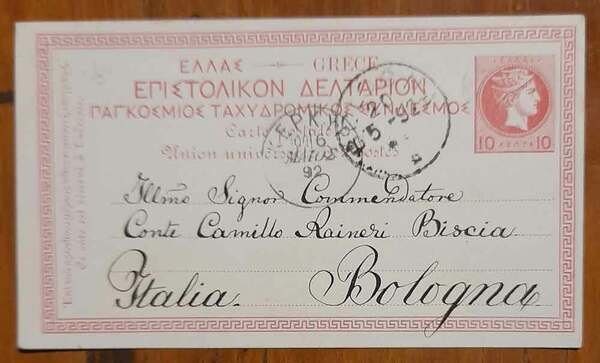 ΕΛΛΑΣ — GRECE
ΕΠΙΣΤΟΛΙΚΟΝ ΔΕΛΤΑΡΙΟΝ
ΠΑΓΚΟΣΜΙΟΣ ΤΑΧΥΔΡΟΜΙΚΟΣ ΣΥΝΔΕΣΜΟΣ
Carte postale
Union universelle des Postes
ΕΛΛΑΣ
10 ΛΕΠΤΑ 10
ΚΕΡΚΥΡΑ
6
ΜΑΙΟΣ
92
20
5-92
Illmo Signor Commendatore
Conte Camillo Raineri Biscia
Italia. Bologna